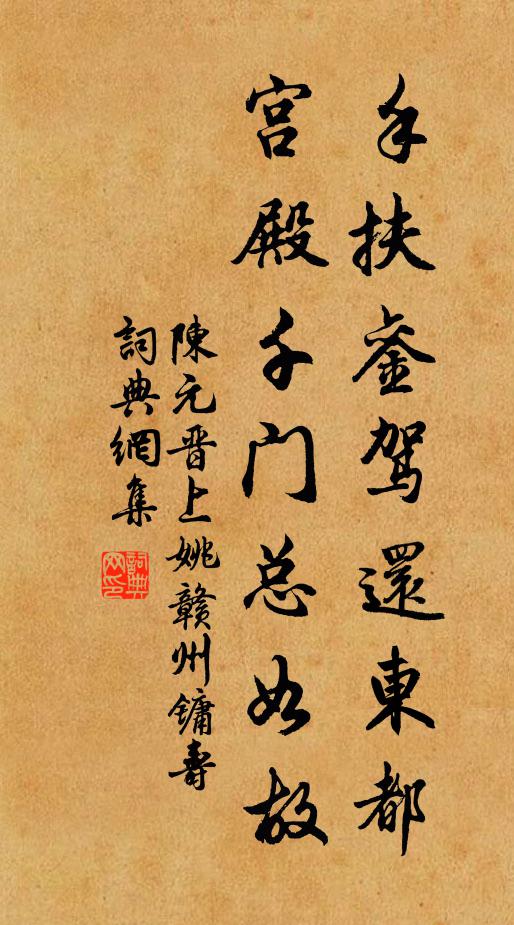 手扶銮駕還東都
宫殿千门总如故
陳元晋上姚赣州鏞壽
詞典網集
詞典网印